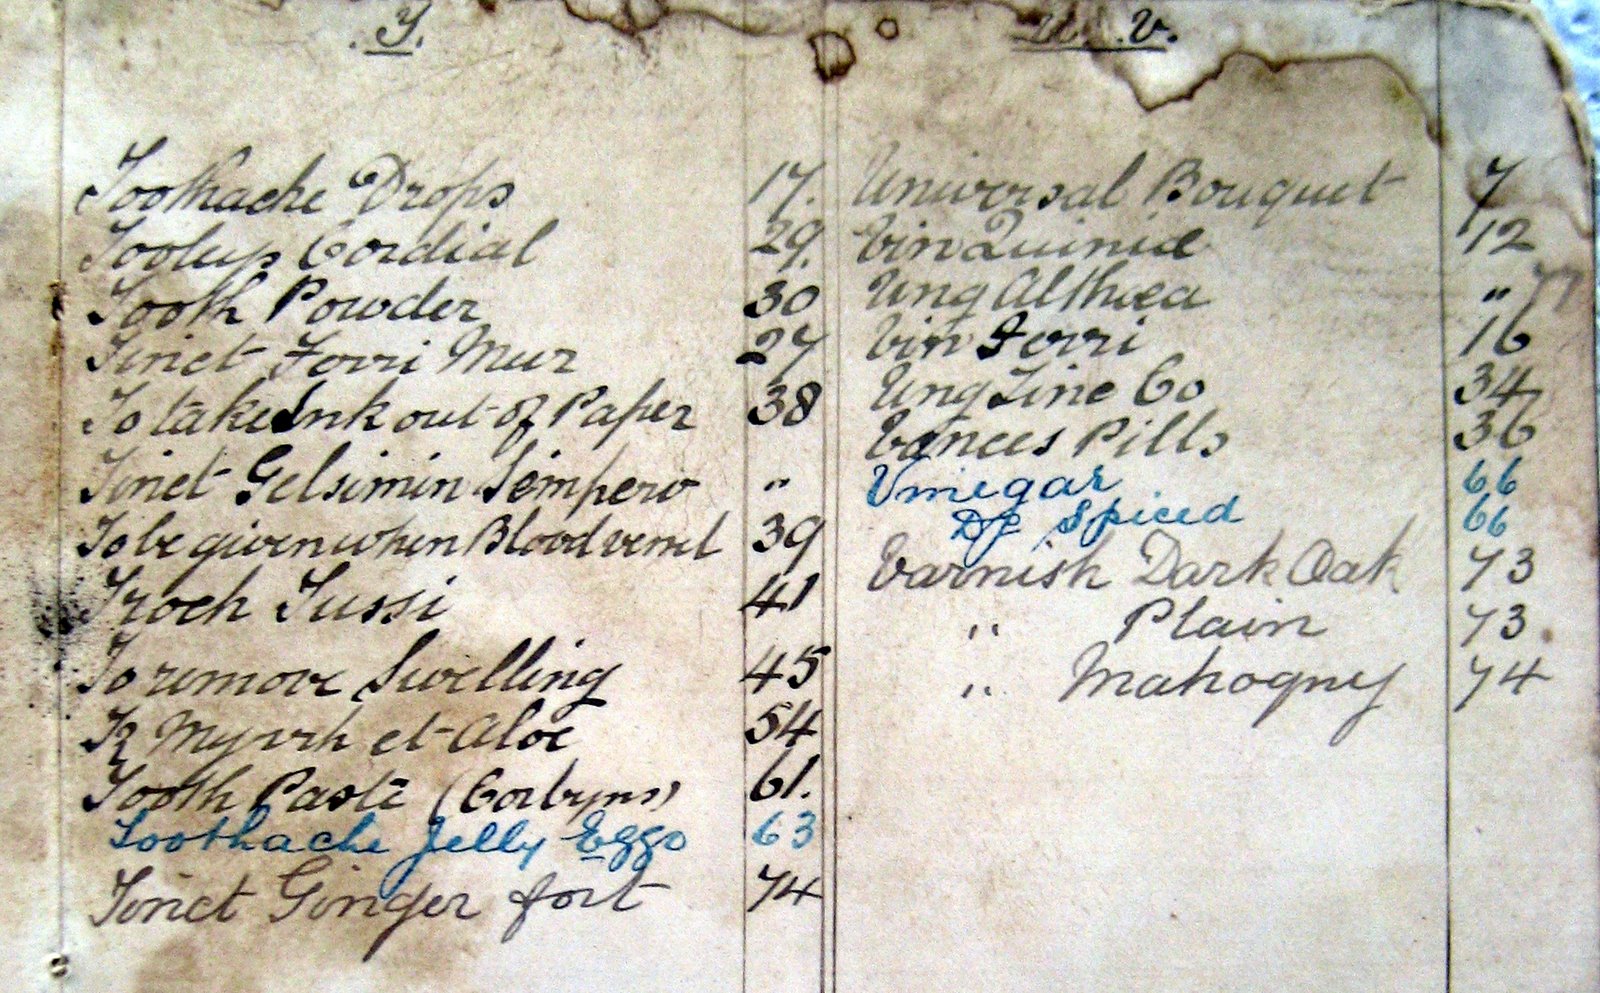 .T.
Toothache Drops 17.
Toolup Cordial 29.
Tooth Powder 30
Tinct Ferri Mur 27
To take Ink out of Paper 38
Tinct Gelsimin Semperv "
To be given when Blood vessel 39
Troch Tussi 41
To remove Swelling 45
Tr Myrrh et Aloe 54
Tooth Paste (Corbyns) 61.
Toothache Jelly Eggs 63
Tinct Ginger fort 74
U. .V.
Universal Bouquet 7
Vin Quiniæ 12
Ung Althæa " 77
Vin Ferri 16
Ung Zinc Co 34
Vances Pills 36
Vinegar 66
Do Spiced 66
Varnish Dark Oak 73
" Plain 73
" Mahogney 74